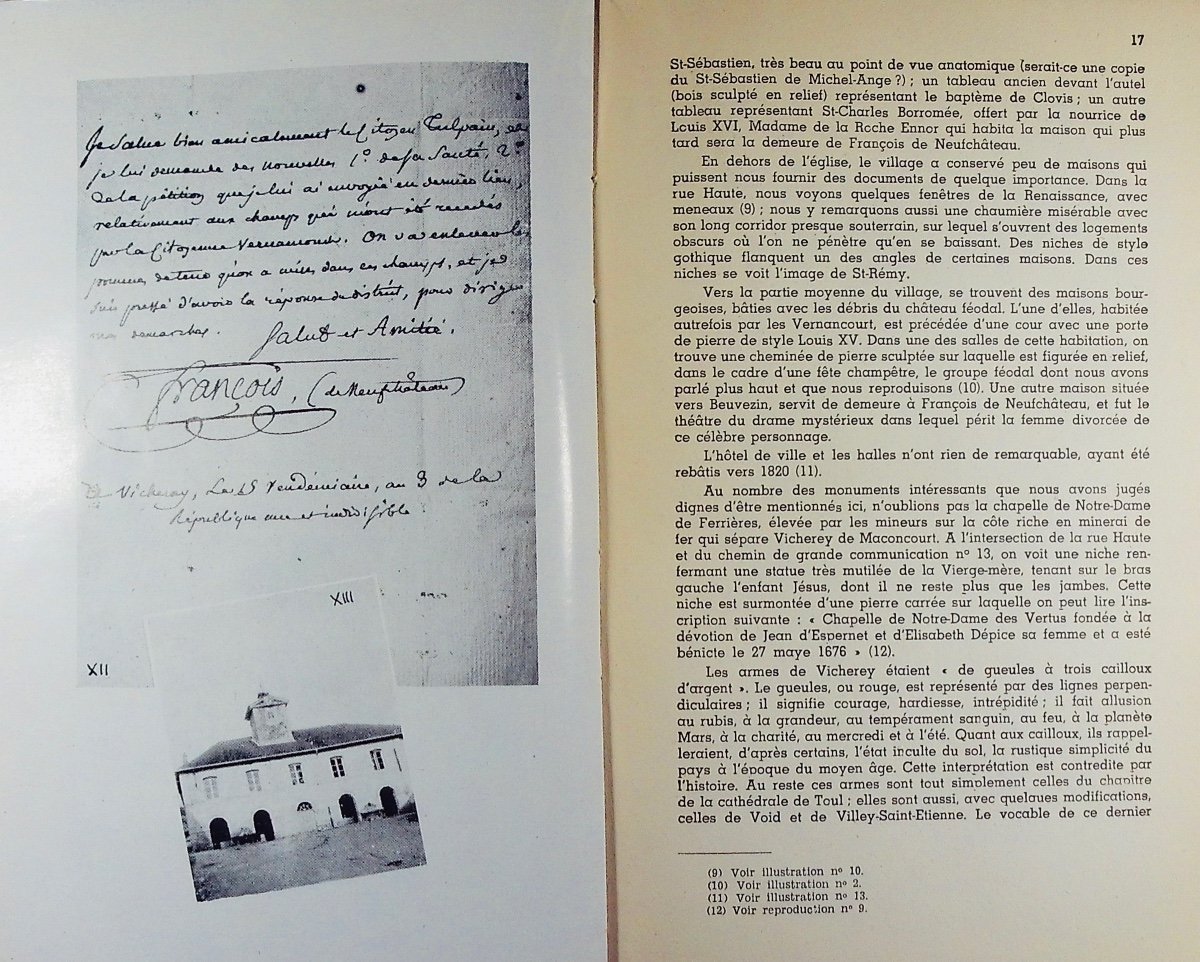 Je salue bien amicalement le Citoyen Tulpain, et
je lui demande des nouvelles 1º. de sa Santé, 2º
De la pétition que je lui ai envoyée en dernier lieu,
relativement aux champs qui m'ont été recedés
par la Citoyenne Vernancourt. On va enlever les
pommes de terre qu'on a mises dans ces champs, et je
suis pressé d'avoir la réponse du district, pour diriger
mes demarches. Salut et Amitié.
François, (de Neufchâteau)
Vicherey, Le 15 Vendémiaire, an 3 de la
République une et indivisible
XII
XIII
17
St-Sébastien, très beau au point de vue anatomique (serait-ce une copie
du St-Sébastien de Michel-Ange ?) ; un tableau ancien devant l'autel
(bois sculpté en relief) représentant le baptème de Clovis ; un autre
tableau représentant St-Charles Borromée, offert par la nourrice de
Louis XVI, Madame de la Roche Ennor qui habita la maison qui plus
tard sera la demeure de François de Neufchâteau.
En dehors de l'église, le village a conservé peu de maisons qui
puissent nous fournir des documents de quelque importance. Dans la
rue Haute, nous voyons quelques fenêtres de la Renaissance, avec
meneaux (9) ; nous y remarquons aussi une chaumière misérable avec
son long corridor presque souterrain, sur lequel s'ouvrent des logements
obscurs où l'on ne pénètre qu'en se baissant. Des niches de style
gothique flanquent un des angles de certaines maisons. Dans ces
niches se voit l'image de St-Rémy.
Vers la partie moyenne du village, se trouvent des maisons bour-
geoises, bâties avec les débris du château féodal. L'une d'elles, habitée
autrefois par les Vernancourt, est précédée d'une cour avec une porte
de pierre de style Louis XV. Dans une des salles de cette habitation, on
trouve une cheminée de pierre sculptée sur laquelle est figurée en relief,
dans le cadre d'une fête champêtre, le groupe féodal dont nous avons
parlé plus haut et que nous reproduisons (10). Une autre maison située
vers Beuvezin, servit de demeure à François de Neufchâteau, et fut le
théâtre du drame mystérieux dans lequel périt la femme divorcée de
ce célèbre personnage.
L'hôtel de ville et les halles n'ont rien de remarquable, ayant été
rebâtis vers 1820 (11).
Au nombre des monuments intéressants que nous avons jugés
dignes d'être mentionnés ici, n'oublions pas la chapelle de Notre-Dame
de Ferrières, élevée par les mineurs sur la côte riche en minerai de
fer qui sépare Vicherey de Maconcourt. A l'intersection de la rue Haute
et du chemin de grande communication nº 13, on voit une niche ren-
fermant une statue très mutilée de la Vierge-mère, tenant sur le bras
gauche l'enfant Jésus, dont il ne reste plus que les jambes. Cette
niche est surmontée d'une pierre carrée sur laquelle on peut lire l'ins-
cription suivante : « Chapelle de Notre-Dame des Vertus fondée à la
dévotion de Jean d'Espernet et d'Elisabeth Dépice sa femme et a esté
bénicte le 27 maye 1676 » (12).
Les armes de Vicherey étaient « de gueules à trois cailloux
d'argent ». Le gueules, ou rouge, est représenté par des lignes perpen-
diculaires ; il signifie courage, hardiesse, intrépidité ; il fait allusion
au rubis, à la grandeur, au tempérament sanguin, au feu, à la planète
Mars, à la charité, au mercredi et à l'été. Quant aux cailloux, ils rappel-
leraient, d'après certains, l'état inculte du sol, la rustique simplicité du
pays à l'époque du moyen âge. Cette interprétation est contredite par
l'histoire. Au reste ces armes sont tout simplement celles du chapitre
de la cathédrale de Toul ; elles sont aussi, avec quelques modifications,
celles de Void et de Villey-Saint-Etienne. Le vocable de ce dernier
(9) Voir illustration nº 10.
(10) Voir illustration nº 2.
(11) Voir illustration nº 13.
(12) Voir reproduction nº 9.